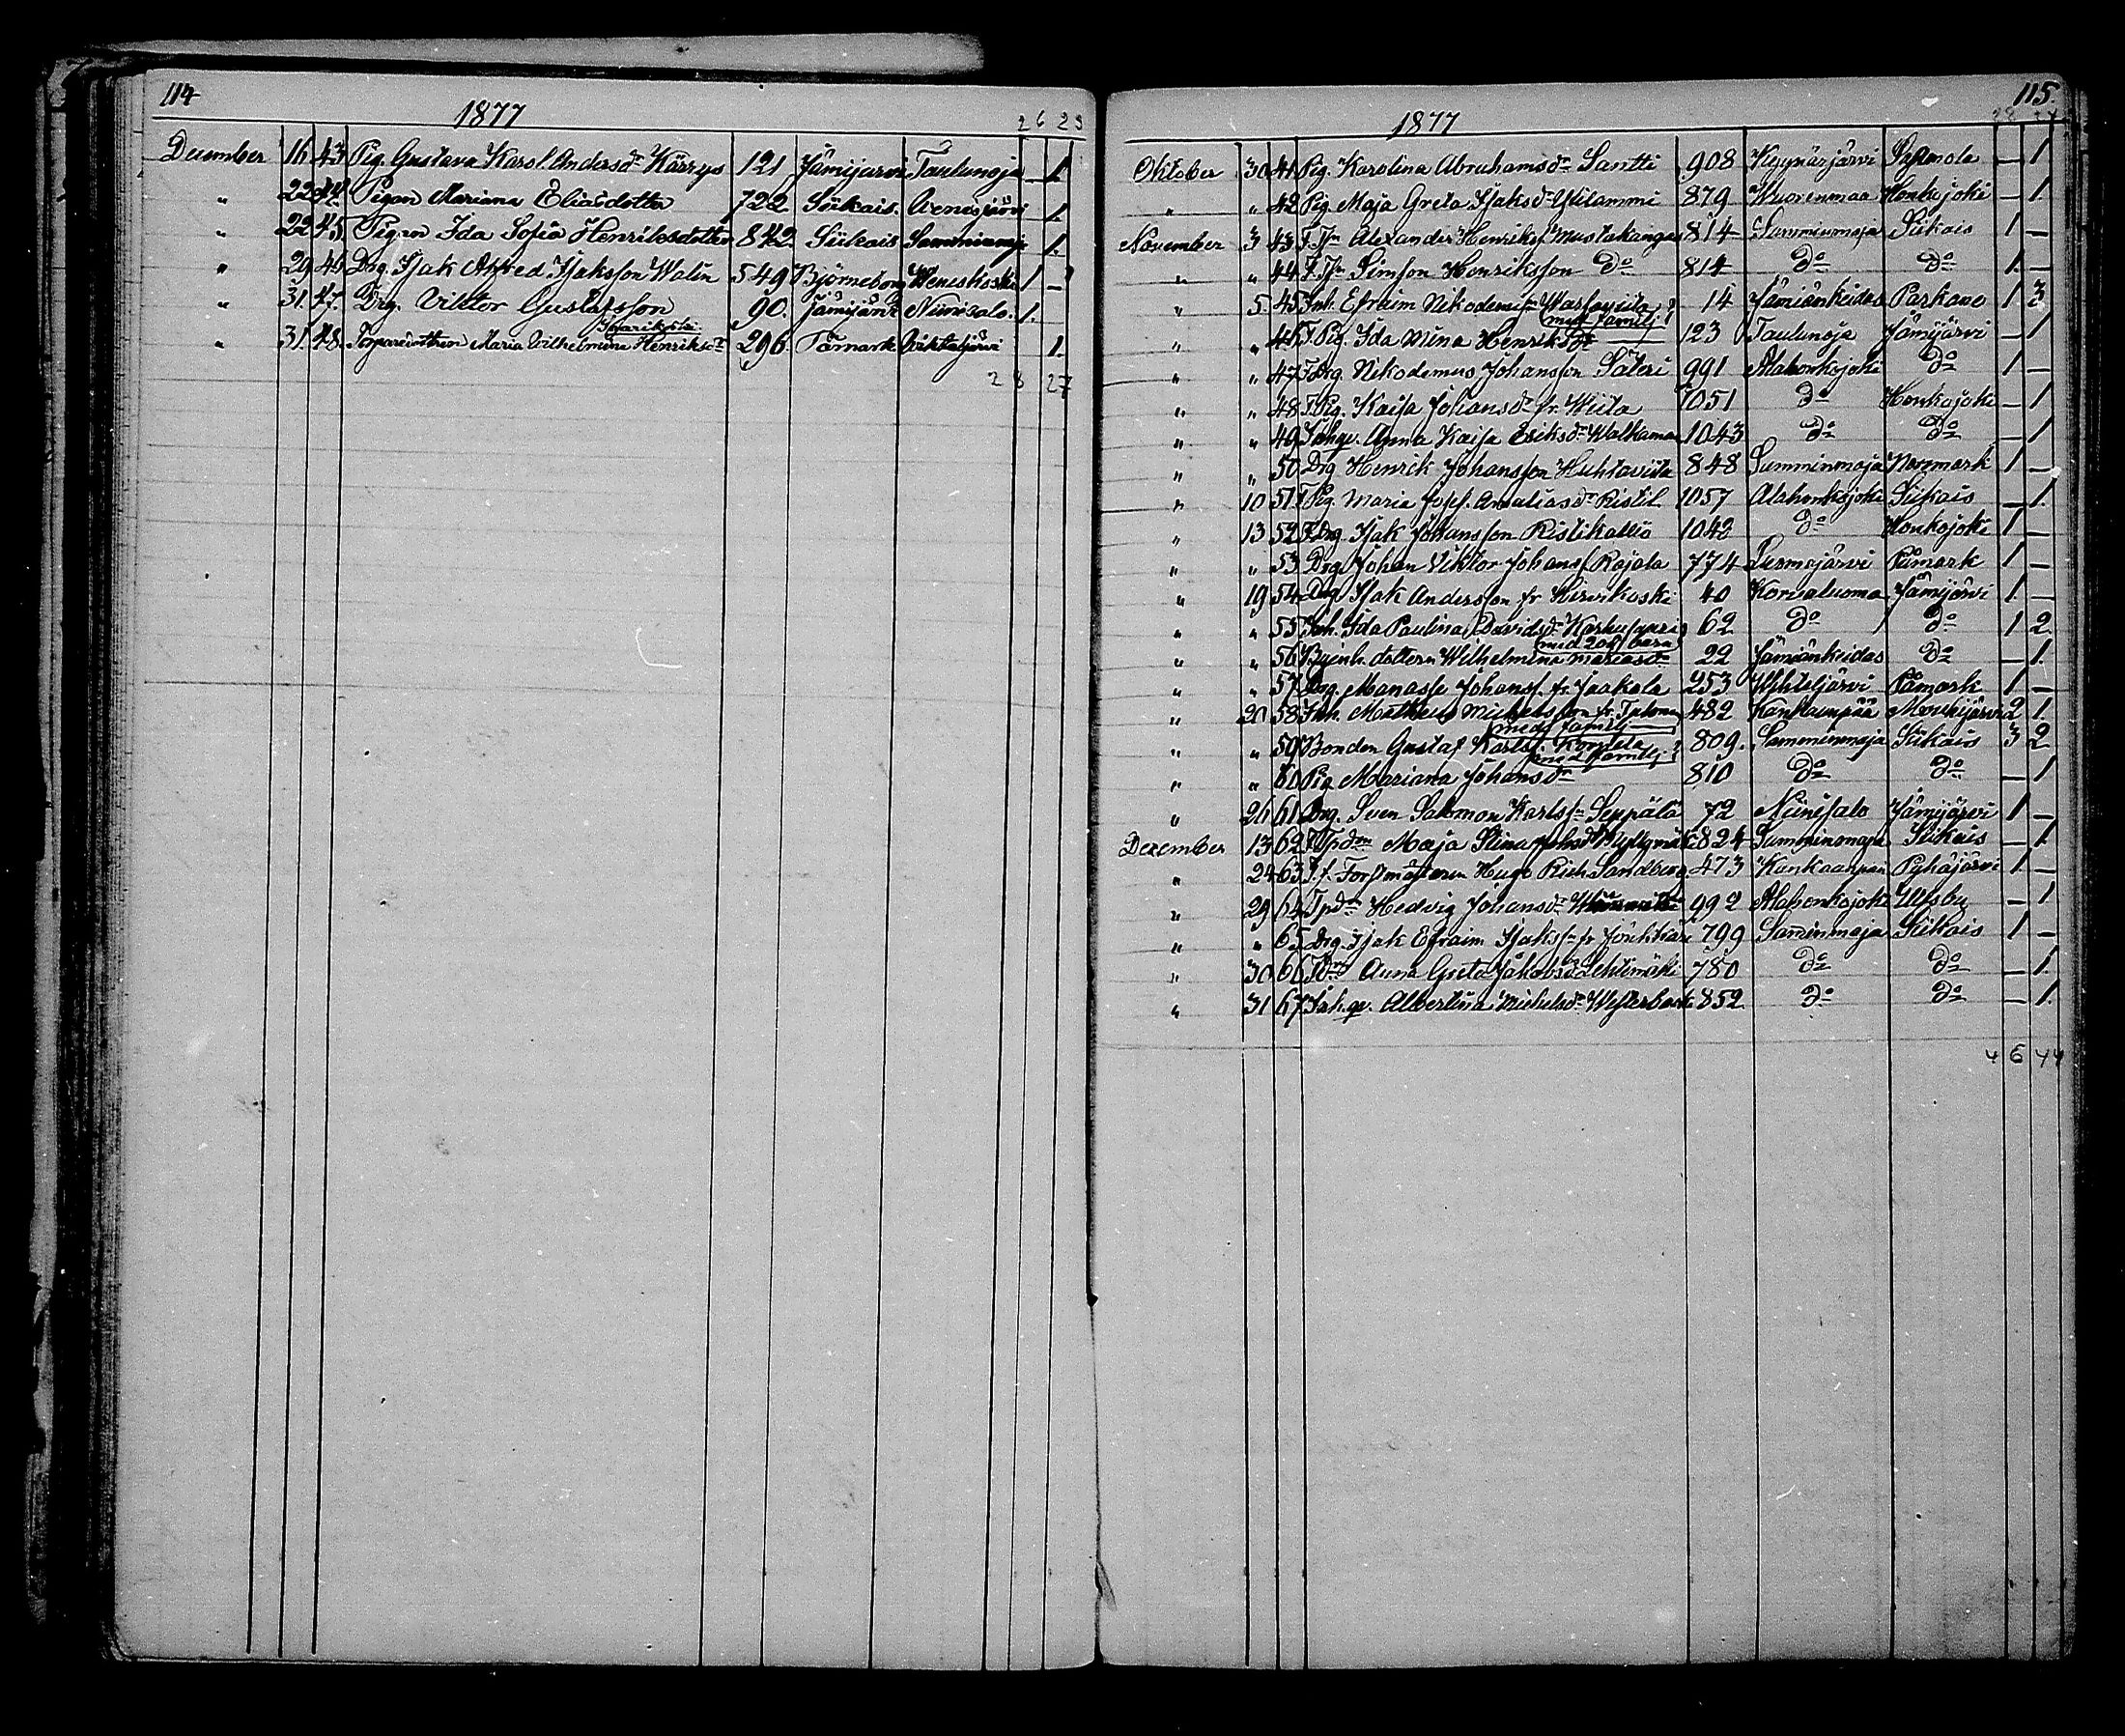 114
1877
26 29
December 16 43 Pig. Gustava Karol. Andersdr Kärrys 121 Jämijärvi Taulunoja — 1.
" 22 44. Pigan Mariana Eliasdotter 722 Siikais. Venesjärvi 1.
" 22 45. Pigan Ida Sofia Henriksdotter 842 Siikais Samminmaja 1.
" 29 46 Drg. Isak Alfred Isaksson Walin 549 Björneborg Veneskoski 1 —
" 31. 47. Drg. Viktor Gustafsson 90. Jämijärvi Niinisalo. 1.
" 31. 48. Torparedottren Maria Vilhelmina Henriksdr 296. Påmark Vihteljärvi 1.
28 27
115.
1877
Oktober 30 41 Pig. Karolina Abrahamsdr Santti 908 Kyynärjärvi — 1
" " 42 Pig. Maja Greta Isaksdr Ylilammi 879 Vuorenmaa Honkojoki — 1.
November 3 43 T.Sn Alexander Henriksf. Mustakangas 814 Samminmaja Siikais 1 —
" " 44 T.Sn Simson Henriksson do 814 do do 1. —
" 5. 45 Inh. Efraim Nikodemusf. 14 Jämiänkeidas Parkano 1 3
med familj
" " 46 T.Pig. Ida Mina Henriksdr 123 Taulunoja Jämijärvi — 1
" " 47 T.Drg. Nikodemus Johansson Säteri 991 Alahonkojoki do 1 —
" " 48 T.Pig. Kaisa Johansdr fr. Wiita 1051 do Honkojoki — 1
" " 49 Inhqv. Anna Kaisa Eriksdr Walkama 1043 do do — 1
" " 50 Drg Henrik Johansson Huhtaviita 848 Samminmaja Norrmark 1 —
" 10 51 T.Pig. Maria Josef. Amaliasdr Ristil 1057 Alahonkojoki Siikais — 1.
" 13 52 T.Drg. Isak Johansson Ristikallio 1042 do Honkojoki 1 —
" " 53 Drg. Johan Viktor Johansf. Rajala 774 Luomajärvi Påmark 1 —
" 19 54 Drg Isak Andersson fr Hirvikoski 40 Kontaluoma Jämijärvi 1 —
" " 55 Inh. Ida Paulina Davidsdr 62 do do 1 2.
med 2 barn
" " 56 dottern Wilhelmina Mariasdr 22 Jämiänkeidas do — 1.
" " 57 Drg. Manasse Johansf. fr Jaakola 253 Vihteljärvi Påmark 1 —
" 20 58 Inh. Matheus Michelsson fr. 482 Kankaanpää Mouhijärvi 2 1.
med familj
" " 59 Bonden Gustaf Karlsf. 809. Samminmaja Siikais 3 2
med familj
" " 60 Pig Mariana Johansdr 810 do do — 1
" 26 61 Drg. Sven Salomon Karlsfn Seppälä 72 Niinisalo Jämijärvi 1 —
Dezember 13 62 Maja Stina Johsdr 824 Samminmaja Siikais — 1.
" 24 63 T.f. Forstmästeren Hugo Rich Sandberg 473 Kankaanpää Pyhäjärvi 1 —
" 29 64 Tpdr Hedvig Johansdr 992 Alahonkojoki Ulfsby — 1
" " 65 Drg. Isak Efraim Isaksfn fr 799 Saminmaja Siikais 1 —
" 30 66 Anna Greta Jakobsdr Lehtimäki 780 do do — 1.
" 31 67 Inh.qv. Albertina Michelsdr Westerback 852 do do — 1.
46 44